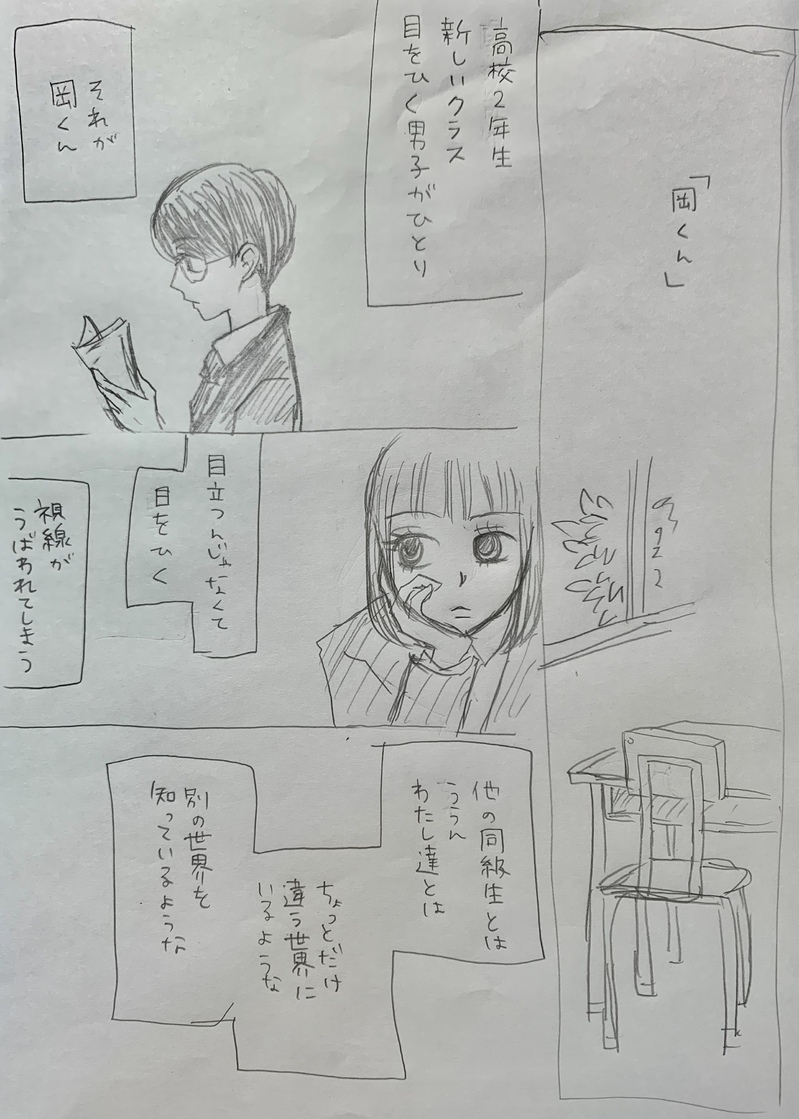 「岡くん」
高校2年生
新しいクラス
目をひく男子がひとり
それが
岡くん
目立つんじゃなくて
目をひく
視線が
うばわれてしまう
他の同級生とは
ううん
わたし達とは
ちょっとだけ
違う世界に
いるような
別の世界を
知っているような